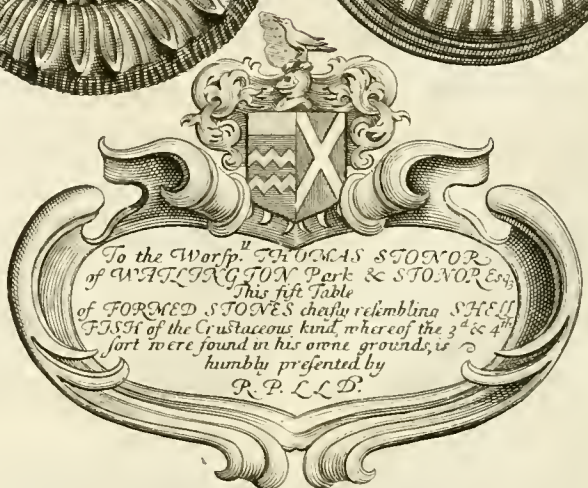 To the Worsp.ll THOMAS STONOR
of WATLINGTON Park & STONOR Esqꝫ
This fift Table
of FORMED STONES cheifly reſembling SHELL
FISH of the Cruſtaceous kind, whereof the 3d & 4th
ſort were found in his owne grounds, is
humbly preſented by
R. P. L L D.